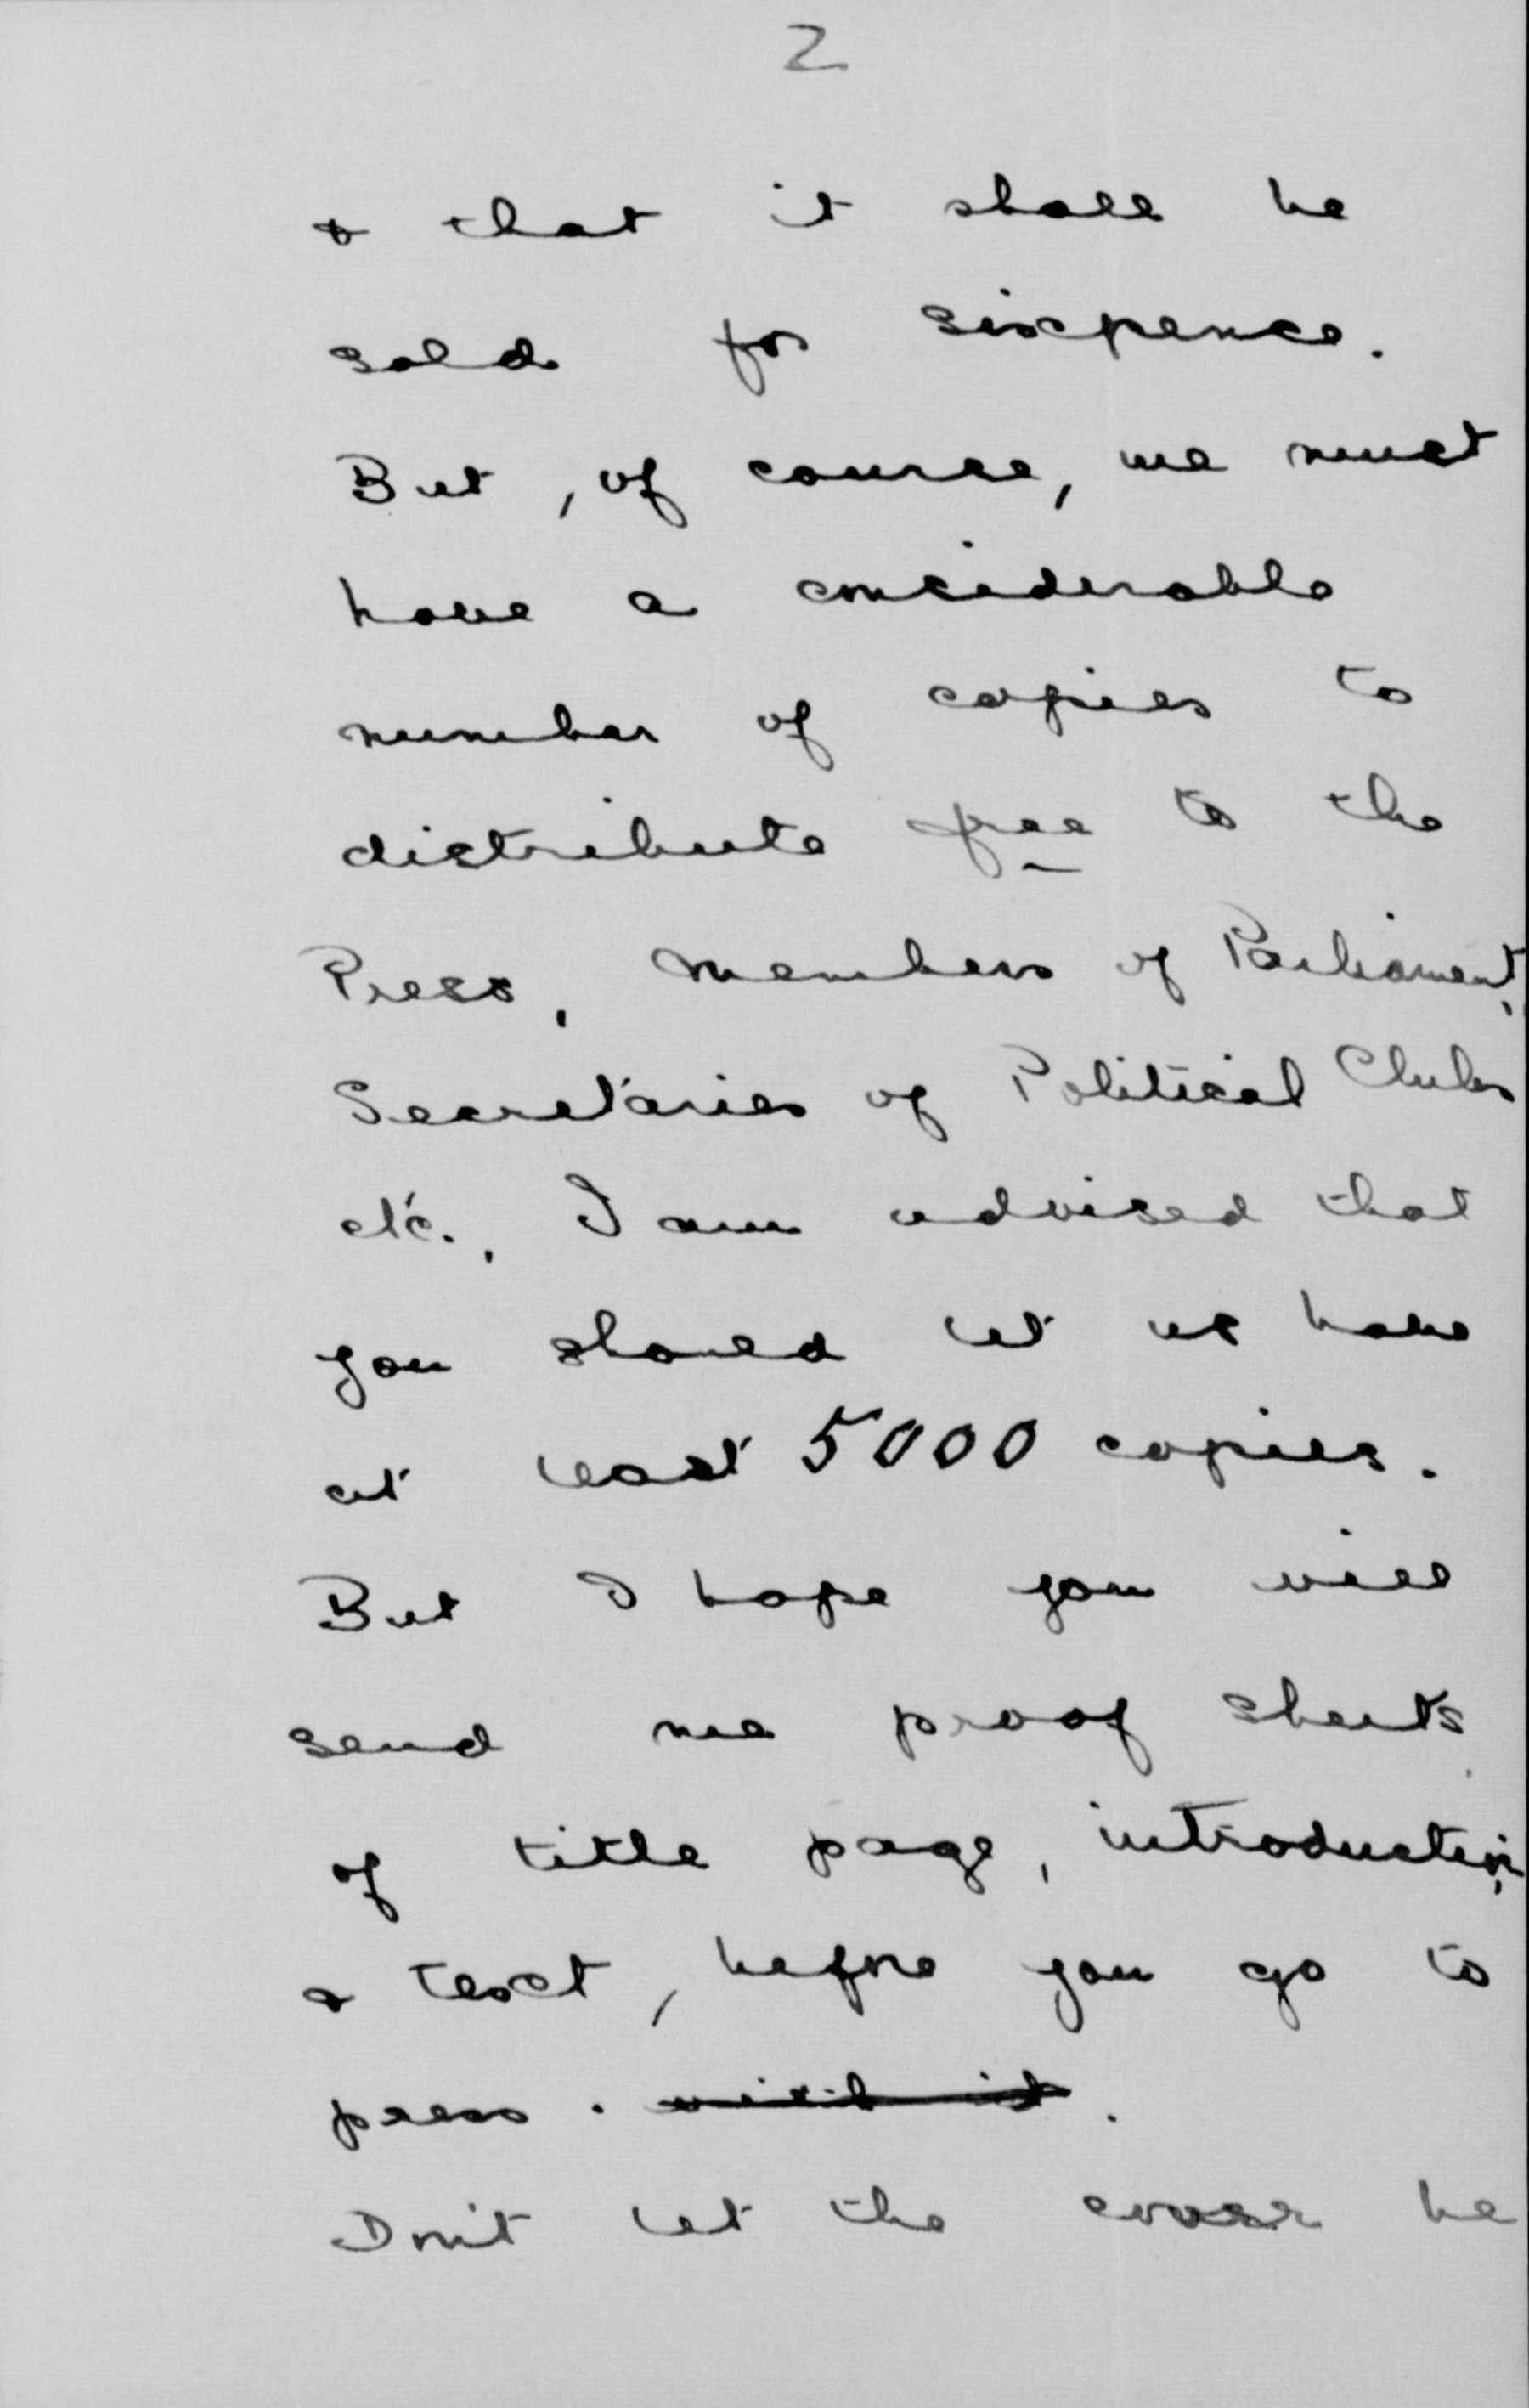 2
& that it shall be
sold for sixpence.
But, of course, we must
have a considerable
number of copies to
distribute free to the
Press, Members of Parliament,
Secretaries of Political Clubs
etc., I am advised that
you should let us have
at least 5000 copies.
But I hope you will
send me proof sheets
of title page, introduction,
& text, before you go to
press. with it.
Don't let the cover be